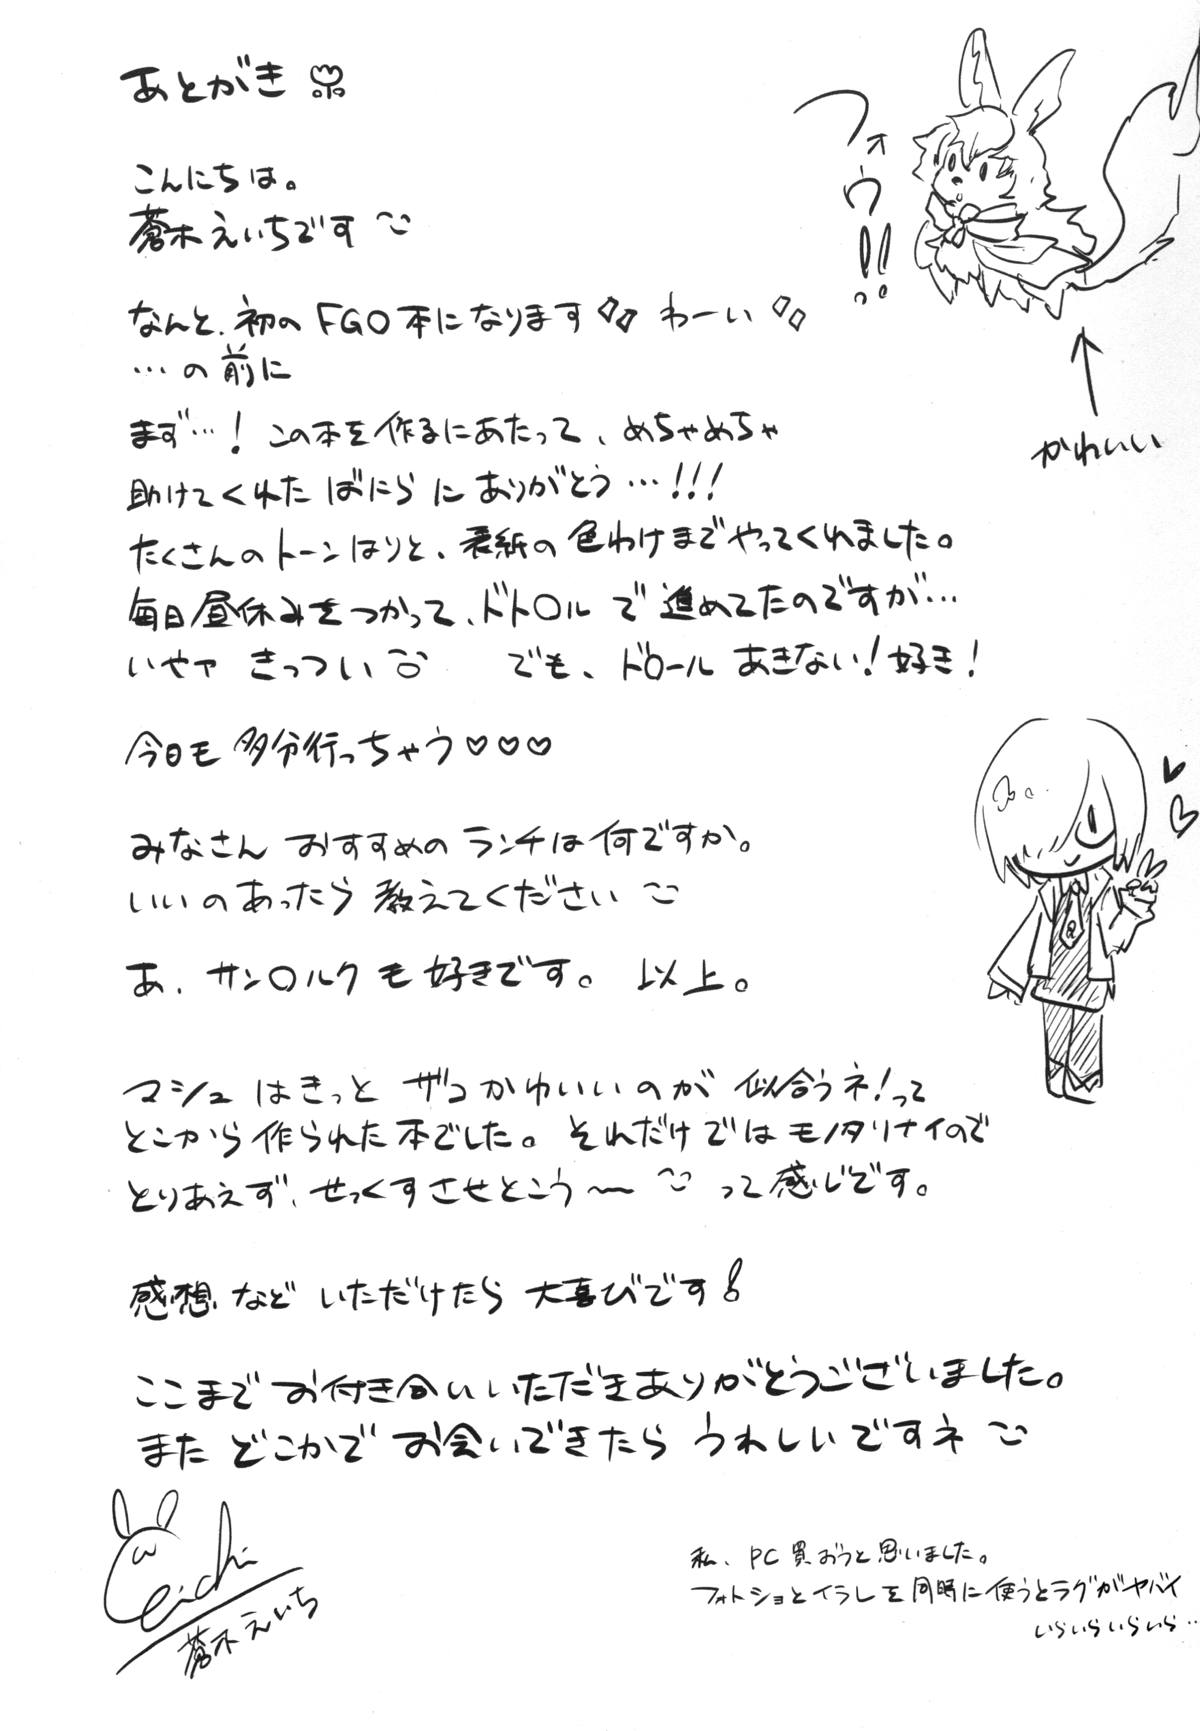 あとがき
フォウ!!
こんにちは。
蒼木えいちです
なんと、初のFGO本になります わーい
…の前に
かわいい
まず…!この本を作るにあたって、めちゃめちゃ
助けてくれた ばにら に ありがとう…!!!
たくさんのトーンはりと、表紙の色わけまでやってくれました。
毎日昼休みをつかって、ドト○ルで進めてたのですが…
いやァ きっつい でも、ド○ール あきない!好き!
今日も多分行っちゃう♡♡♡
みなさん おすすめのランチは何ですか。
いいのあったら教えてください
あ、サン○ルクも好きです。 以上。
マシュはきっと ザコかわいいのが 似合うネ!って
とこから作られた本でした。それだけではモノタリナイので
とりあえず、せっくすさせとこう〜 って感じです。
感想などいただけたら大喜びです!
ここまでお付き合いいただきありがとうございました。
また どこかで お会いできたら うれしいですネ
eichi
蒼木えいち
私、PC買おうと思いました。
フォトショとイラレを同時に使うとラグがヤバイ
いらいらいらいら‥